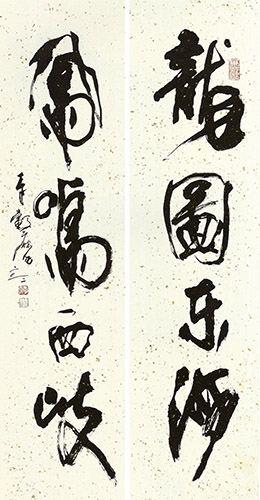 龍圖东海
鳳鳴西岐